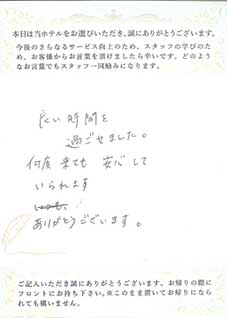 本日は当ホテルをお選びいただき、誠にありがとうございます。
今後のさらなるサービス向上のため、スタッフの学びのた
め、お客様からお言葉を頂けましたら幸いです。どのよう
なお言葉でもスタッフ一同励みになります。
良い時間を
過ごせました。
何度来ても 安心して
いられます
ありがとうございます。
ご記入いただき誠にありがとうございます。お帰りの際に
フロントにお持ち下さい。※このまま置いてお帰りになら
れても構いません。